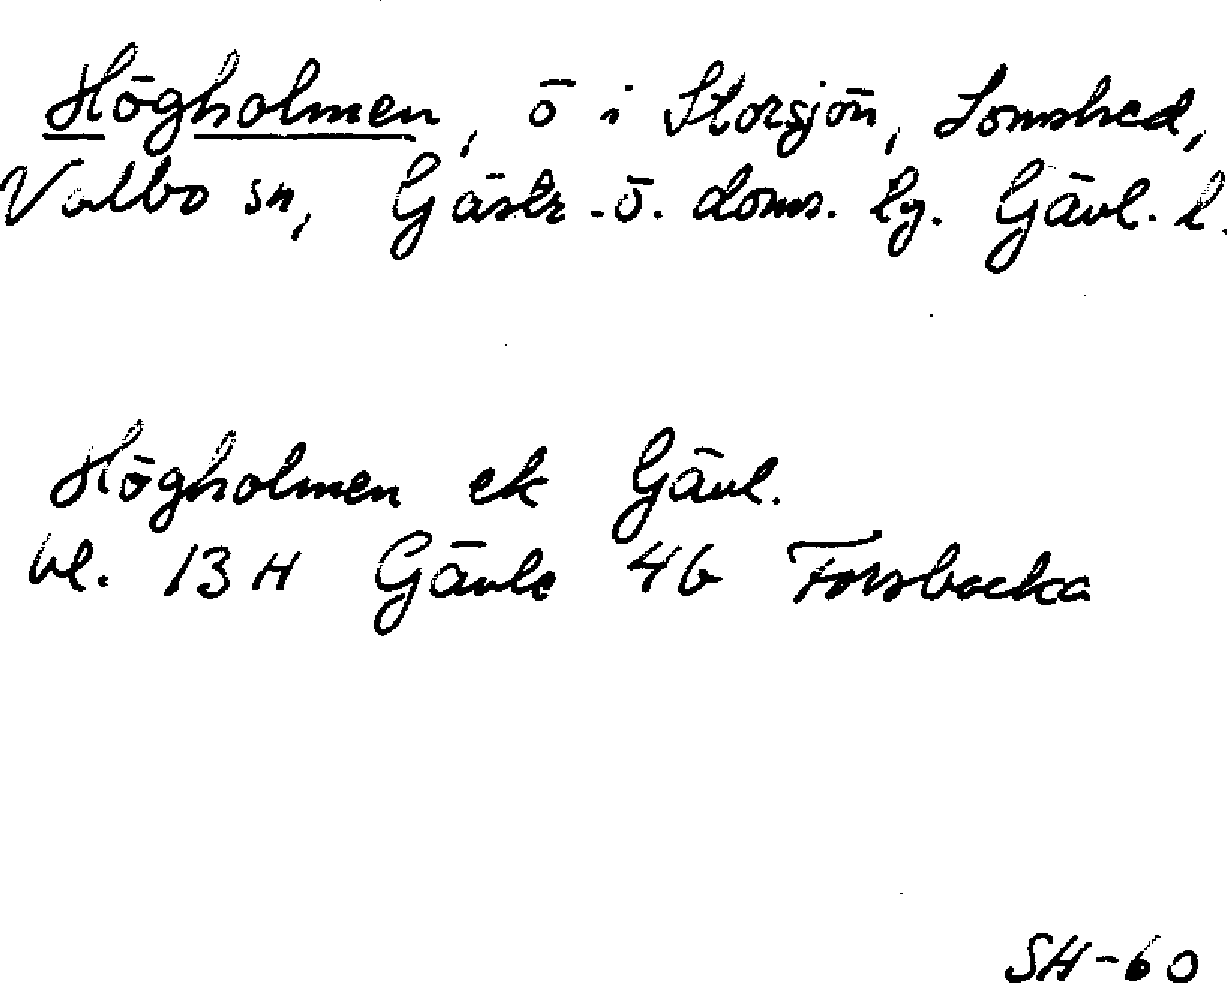 Högholmen, ö i Storsjön, Lomshed,
Valbo sn, Gästr.-ö. doms. lg. Gävl. l.
Högholmen ek Gävl.
bl. 13H Gävle 4b Forsbacka
SH-60